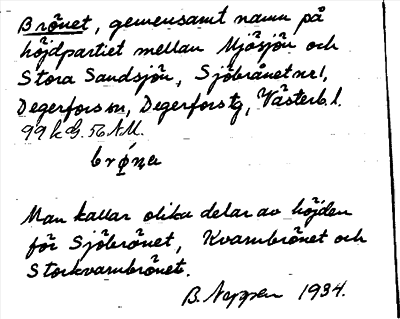 Brånet, gemensamt namn på
höjdpartiet mellan Mjösjön och
Stora Sandsjön, Sjöbrånet nr 1,
Degerfors sn, Degerfors tg, Västerb. l.
99 k G. 56 N.M.
Man kallar olika delar av höjden
för Sjöbrånet, Kvarnbrånet och
Storkvarnbrånet.
B. 1934.